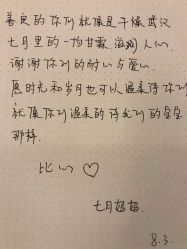 善良的你们就像是干燥武汉
七月里的一场甘霖,滋润人心
谢谢你们的耐心与爱心
愿时光和岁月也可以温柔待你们
就像你们温柔的待我们的宝宝
那样.
比心♡
七月妈妈.
8.3